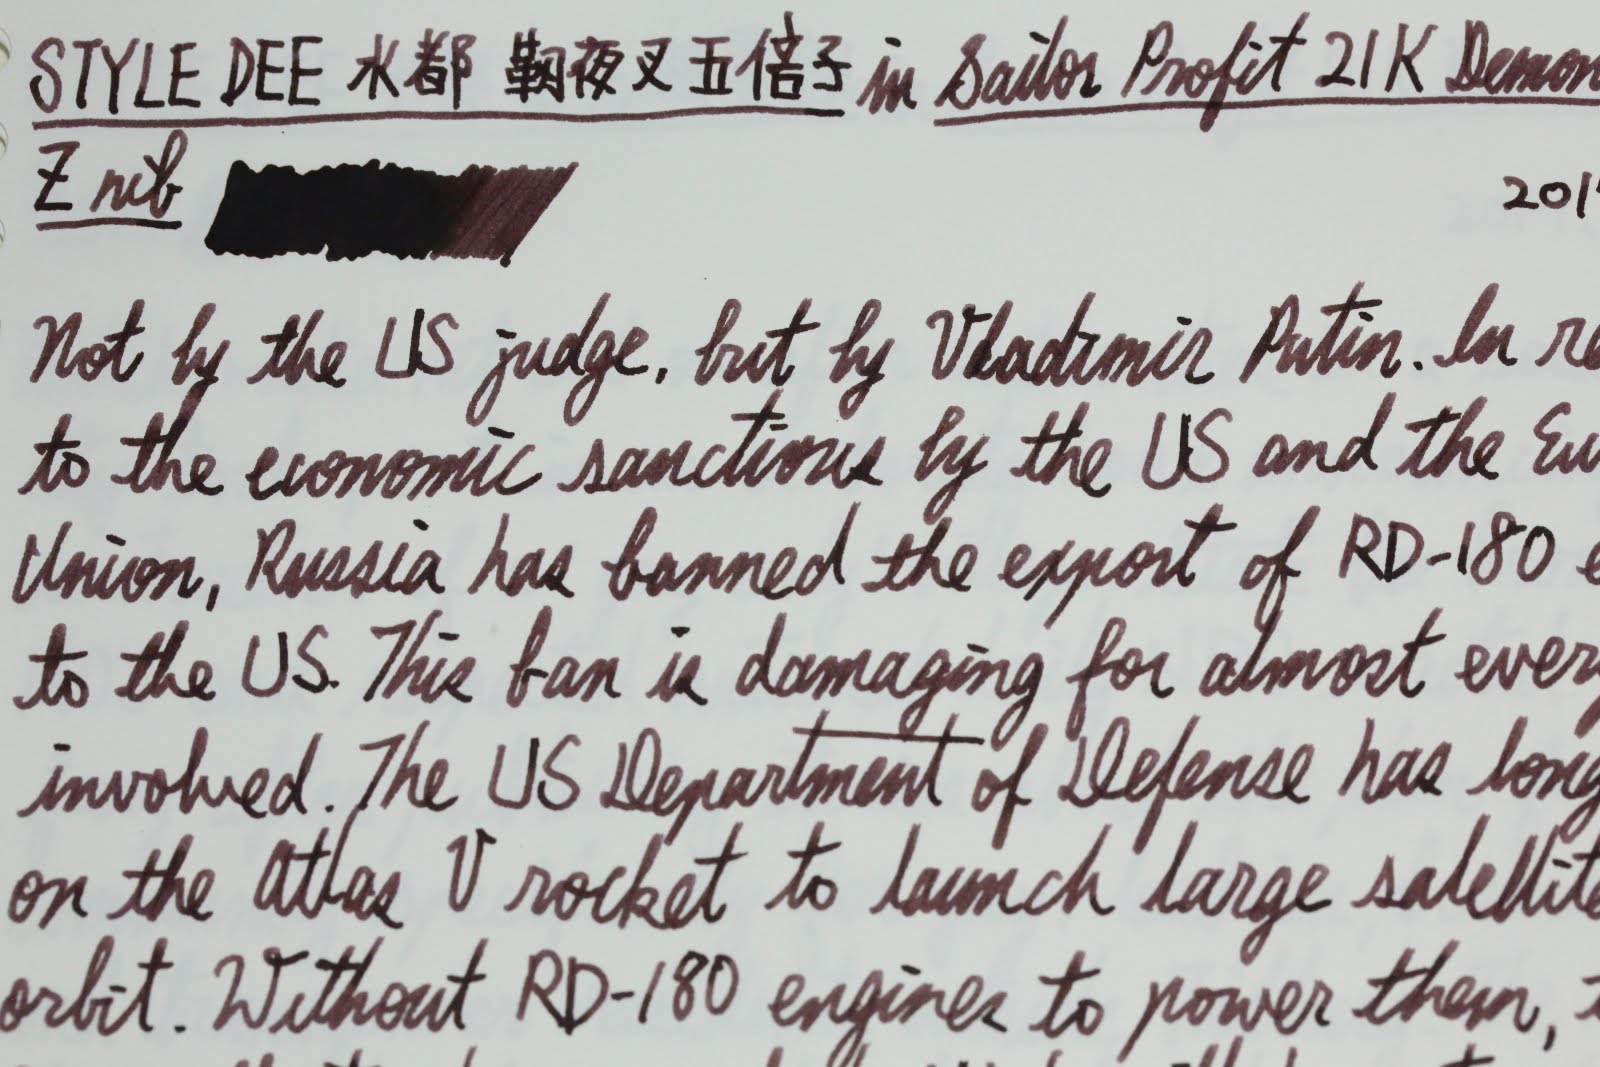 STYLE DEE 水都 鞆夜叉五倍子 in Sailor Profit 21K Demon
Z nib
201
Not by the US judge, but by Vladimir Putin. In re
to the economic sanctions by the US and the Eu
Union, Russia has banned the export of RD-180 e
to the US. This ban is damaging for almost every
involved. The US Department of Defense has long
on the Atlas V rocket to launch large satellite
orbit. Without RD-180 engines to power them, t